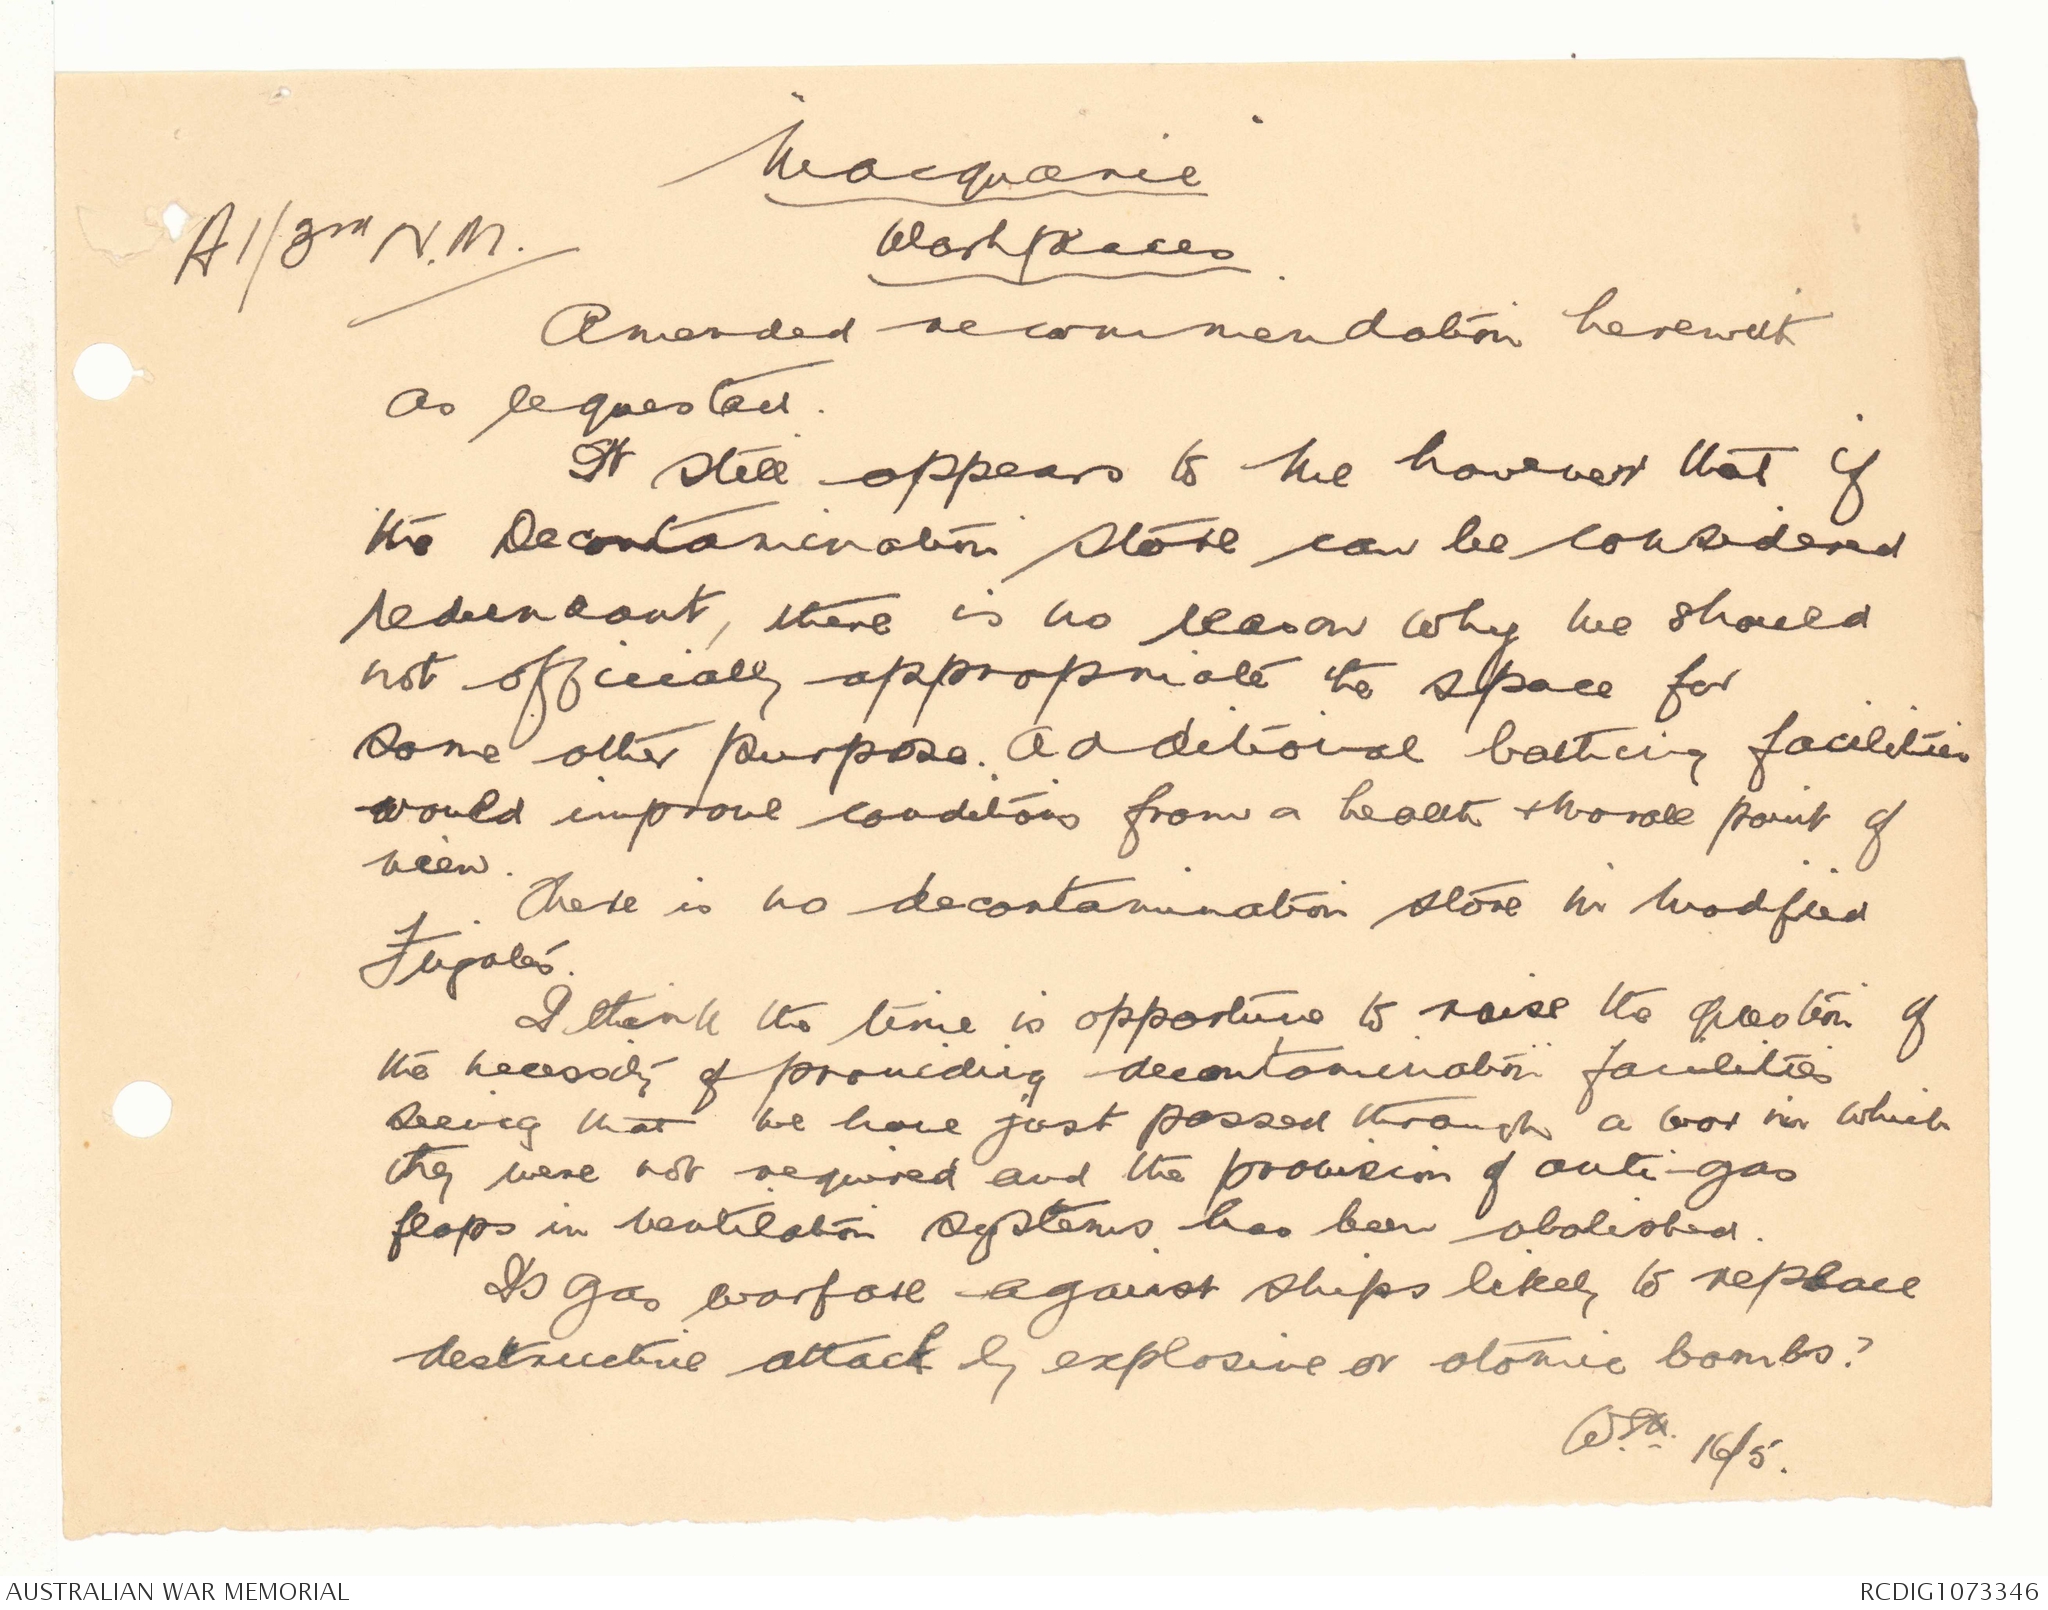 Macquarie
Washplaces
A1/3rd N.M.
Amended recommendation herewith
as requested.
It still appears to me however that if
the Decontamination store can be considered
redundant, there is no reason why we should
not officially appropriate the space for
some other purpose. Additional bathing facilities
would improve conditions from a health & morale point of
view.
There is no decontamination store in modified
Frigates.
I think the time is opportune to raise the question of
the necessity of providing decontamination facilities
seeing that we have just passed through a war in which
they were not required and the provision of anti-gas
flaps in ventilation systems has been abolished.
Is gas warfare against ships likely to replace
destructive attack by explosive or atomic bombs?
16/5.
AUSTRALIAN WAR MEMORIAL
RCDIG1073346